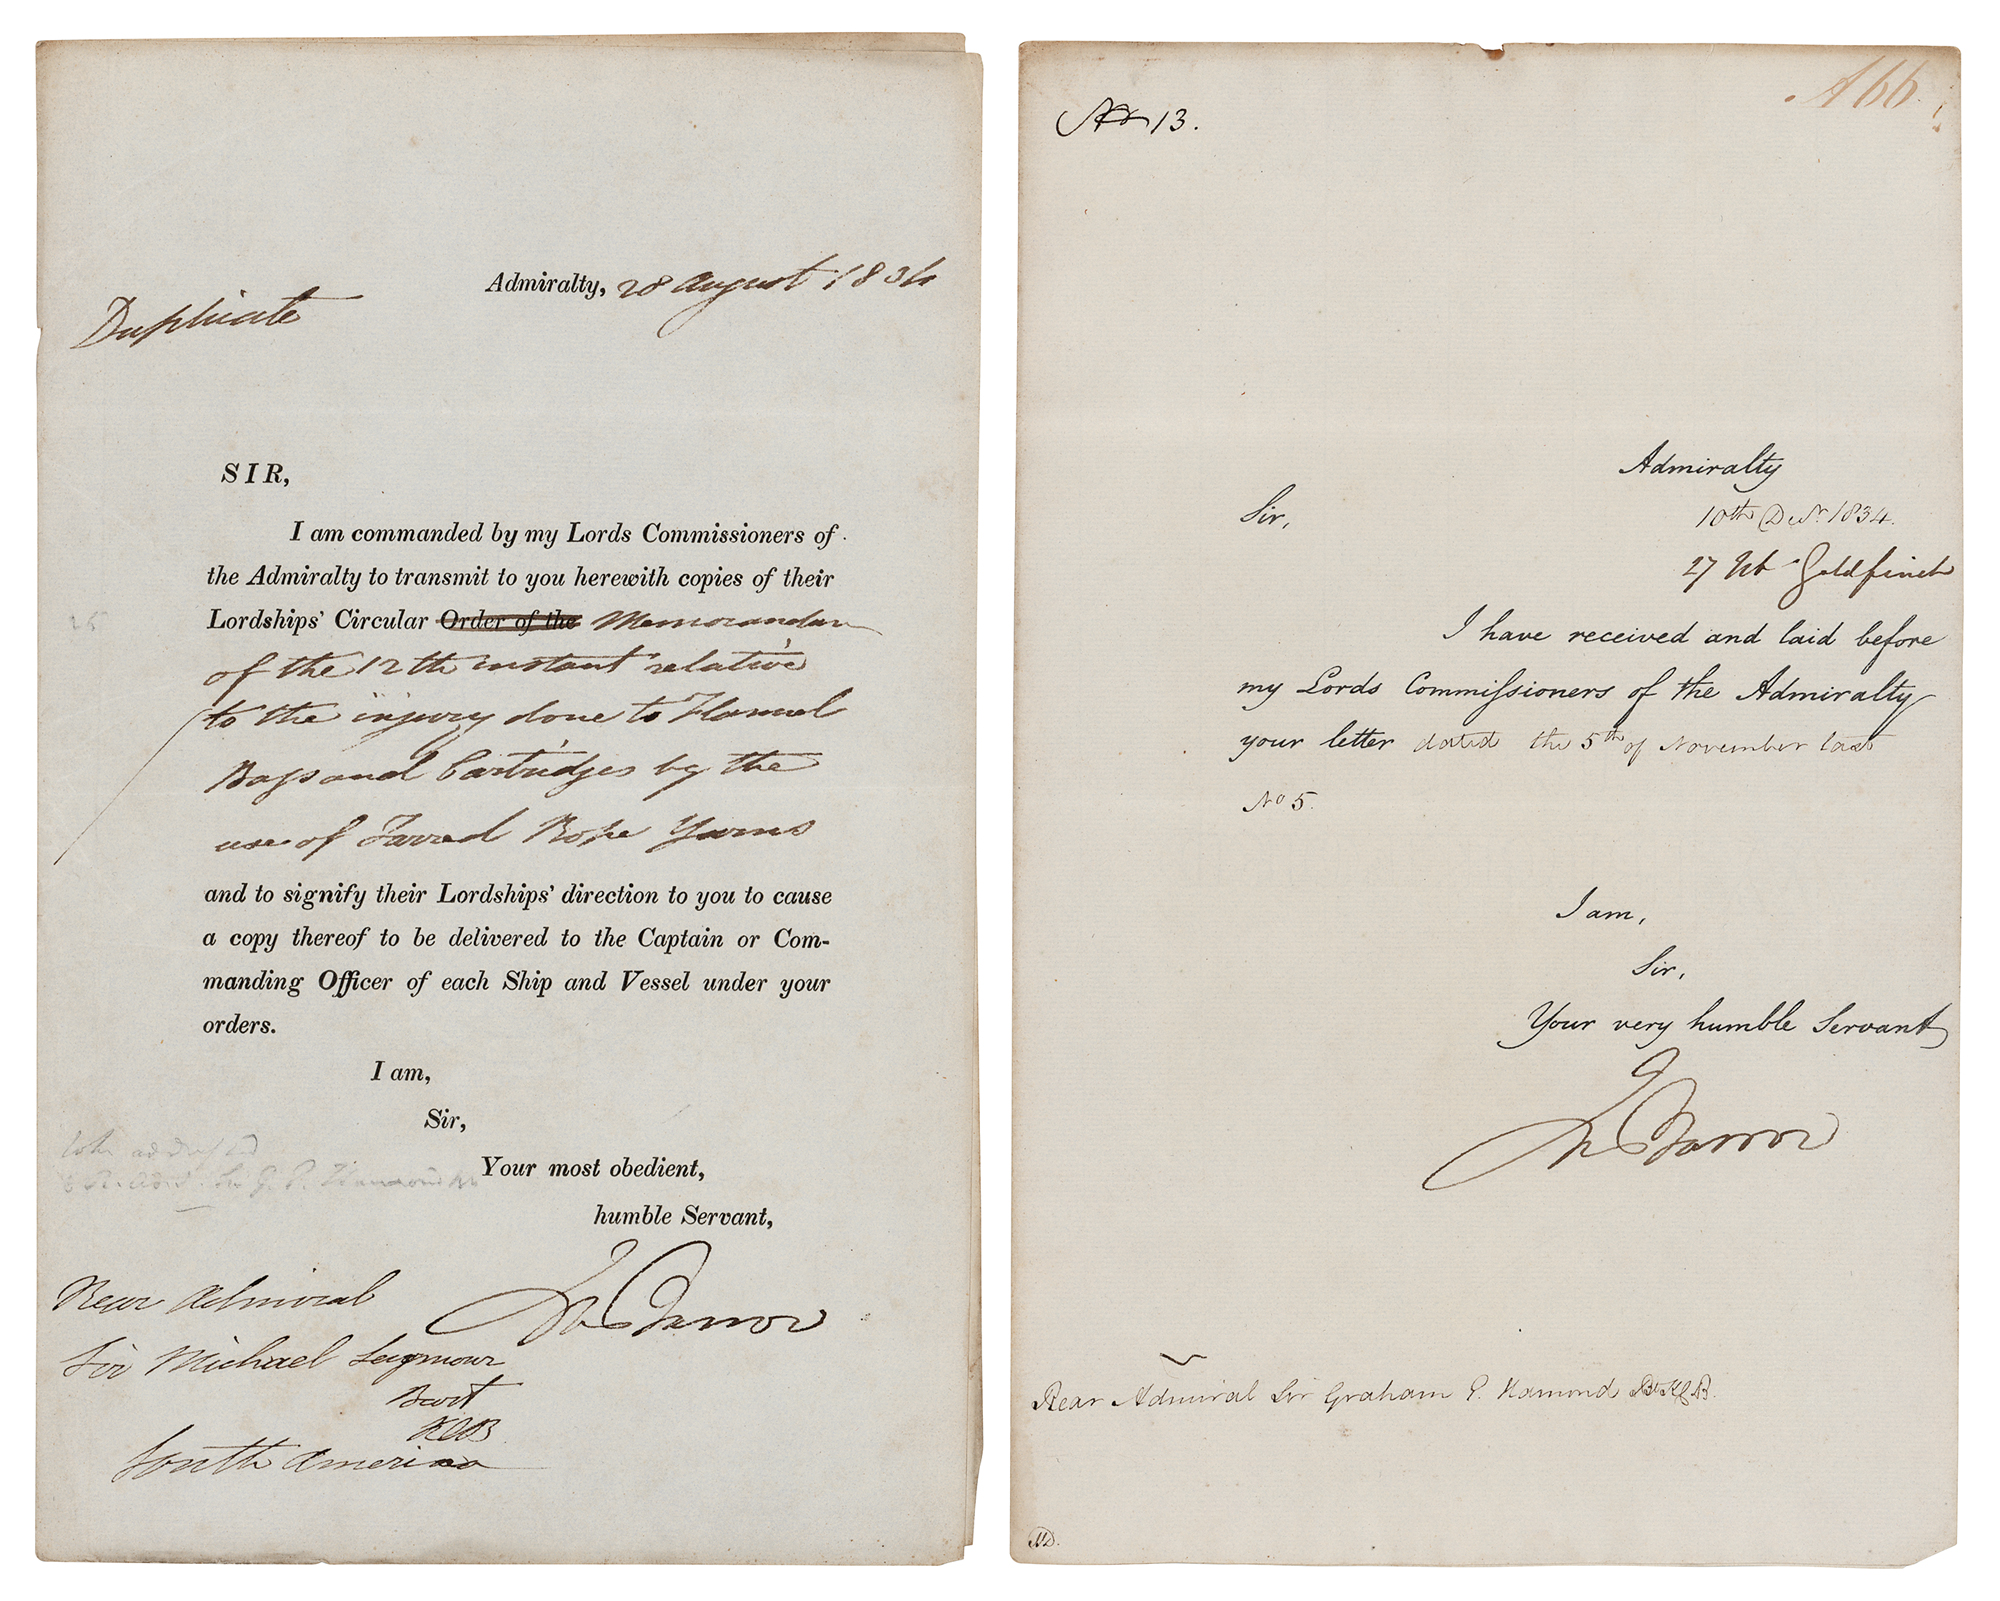 Admiralty, 28 August 1834
Duplicate
SIR,
I am commanded by my Lords Commissioners of
the Admiralty to transmit to you herewith copies of their
Lordships' Circular Order of the Memorandum
of the 12th instant relative
to the injury done to Flannel
Bags and Cartridges by the
use of Tarred Rope Yarns
and to signify their Lordships' direction to you to cause
a copy thereof to be delivered to the Captain or Com-
manding Officer of each Ship and Vessel under your
orders.
I am,
Sir,
Your most obedient,
humble Servant,
Jn Barrow
Rear Admiral
Sir Michael Seymour
Bart
KCB
South America
25
addressed
Sir G. E. Hamond
No 13.
A66
Admiralty
10th Decr. 1834.
Sir,
27 Goldfinch
I have received and laid before
my Lords Commissioners of the Admiralty
your letter dated the 5th of November last
No 5.
I am,
Sir,
Your very humble Servant
Jn Barrow
Rear Admiral Sir Graham E. Hamond Bt KCB.